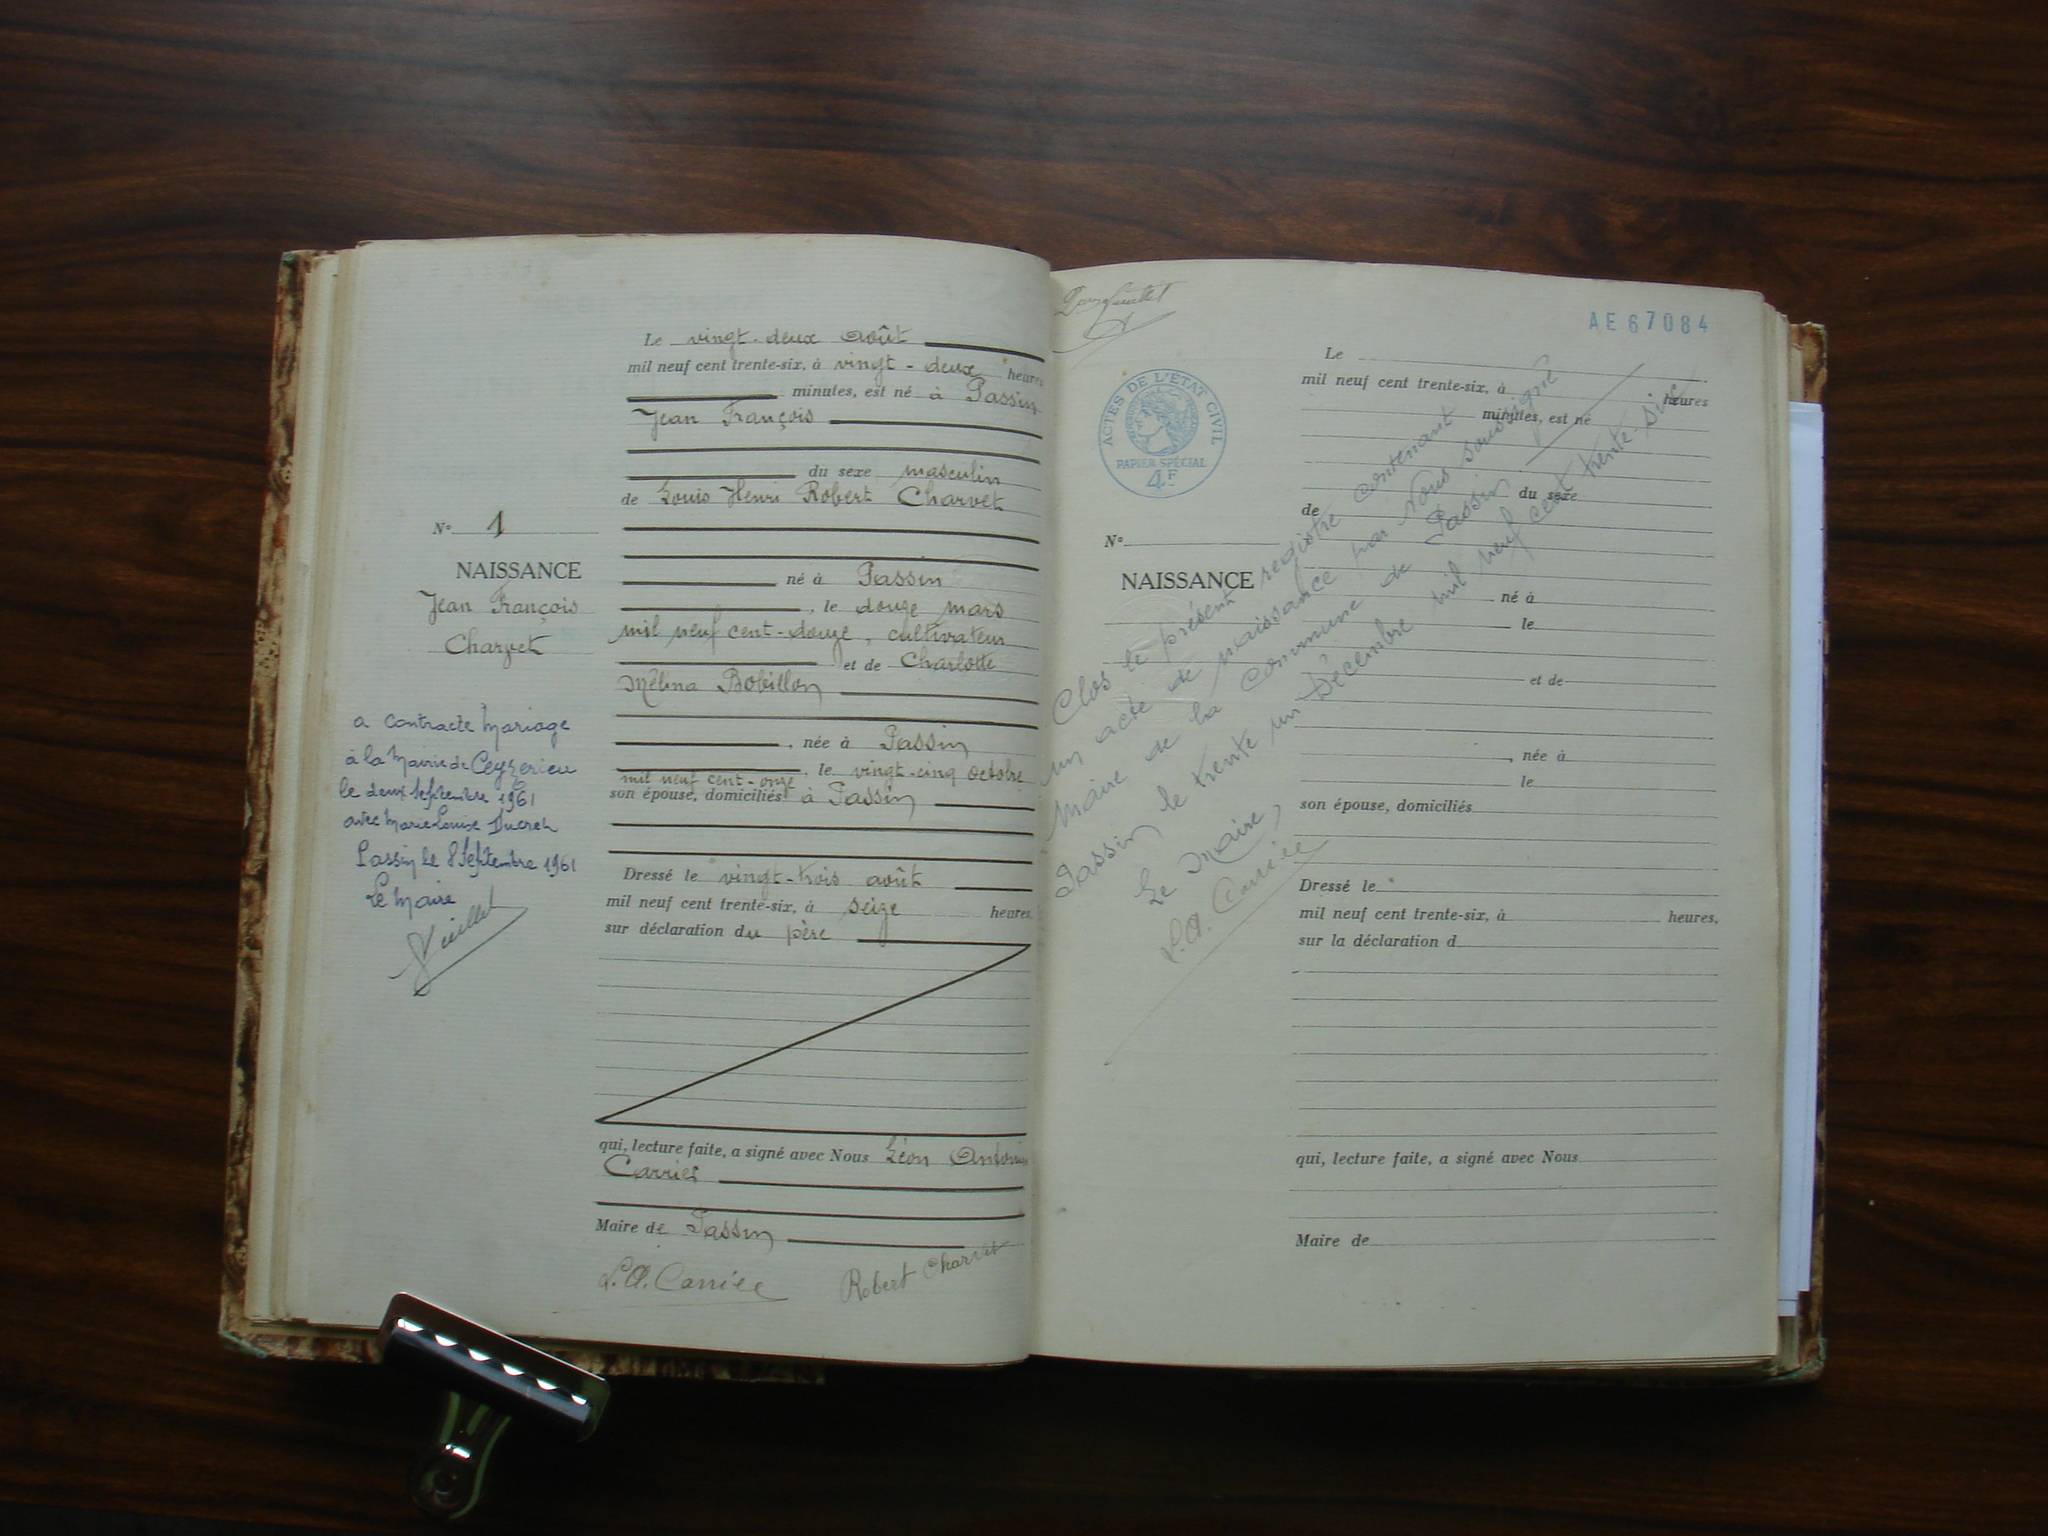 Le vingt-deux août
mil neuf cent trente-six, à vingt-deux heures
minutes, est né à Passin
Jean François
du sexe masculin
de Louis Henri Robert Charvet
né à Passin
, le douze mars
mil neuf cent-douze, cultivateur
et de Charlotte
Mélina Bobillon
, née à Passin
, le vingt-cinq octobre
mil neuf cent-onze
son épouse, domiciliés à Passin
Dressé le vingt-trois août
mil neuf cent trente-six, à seize heures,
sur déclaration du père
qui, lecture faite, a signé avec Nous Léon Antonin
Carrier
Maire de Passin
L.A. Carrier
Robert Charvet
N° 1
NAISSANCE
Jean François
Charvet
a contracté Mariage
à la Mairie de Ceyzerieu
le deux Septembre 1961
avec Marie Louise Ducret
Passin le 8 Septembre 1961
Le Maire
AE67084
ACTES DE L'ÉTAT CIVIL
PAPIER SPÉCIAL
4F
N°
NAISSANCE
Le
mil neuf cent trente-six, à heures
minutes, est né
du sexe
de
né à
le
et de
, née à
le
son épouse, domiciliés
Dressé le
mil neuf cent trente-six, à heures,
sur la déclaration d
qui, lecture faite, a signé avec Nous
Maire de
Clos le présent registre contenant
un acte de naissance par Nous soussigné
Maire de la Commune de Passin
Passin le trente un Décembre mil neuf cent trente-six
Le Maire,
L.A. Carrier